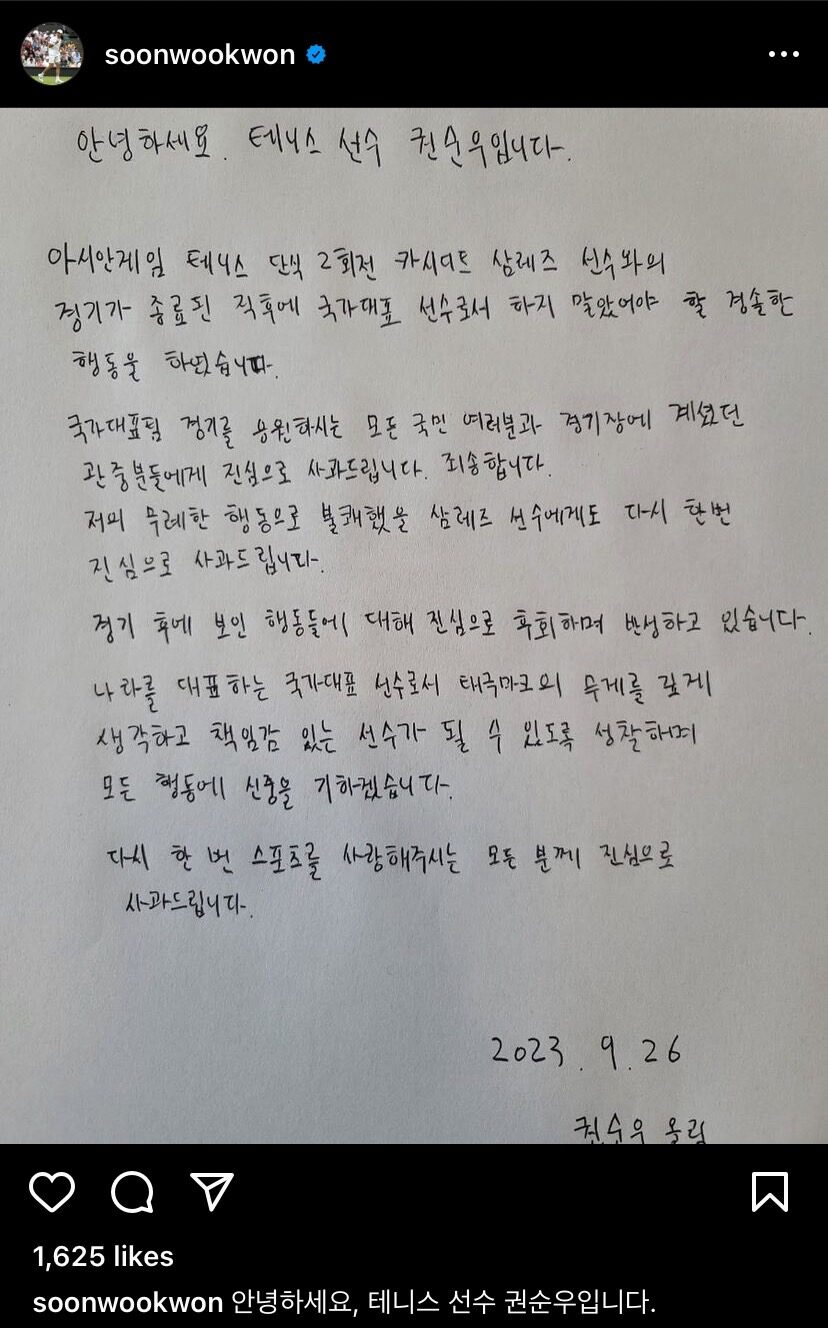 soonwookwon
안녕하세요. 테니스 선수 권순우입니다.
아시안게임 테니스 단식 2회전 카시디트 삼레즈 선수와의
경기가 종료된 직후에 국가대표 선수로서 하지 말았어야 할 경솔한
행동을 하였습니다.
국가대표팀 경기를 응원하시는 모든 국민 여러분과 경기장에 계셨던
관중분들에게 진심으로 사과드립니다. 죄송합니다.
저의 무례한 행동으로 불쾌했을 삼레즈 선수에게도 다시 한번
진심으로 사과드립니다.
경기 후에 보인 행동들에 대해 진심으로 후회하며 반성하고 있습니다.
나라를 대표하는 국가대표 선수로서 태극마크의 무게를 깊게
생각하고 책임감 있는 선수가 될 수 있도록 성찰하며
모든 행동에 신중을 기하겠습니다.
다시 한 번 스포츠를 사랑해주시는 모든 분께 진심으로
사과드립니다.
2023. 9. 26
권순우 올림
1,625 likes
soonwookwon 안녕하세요, 테니스 선수 권순우입니다.